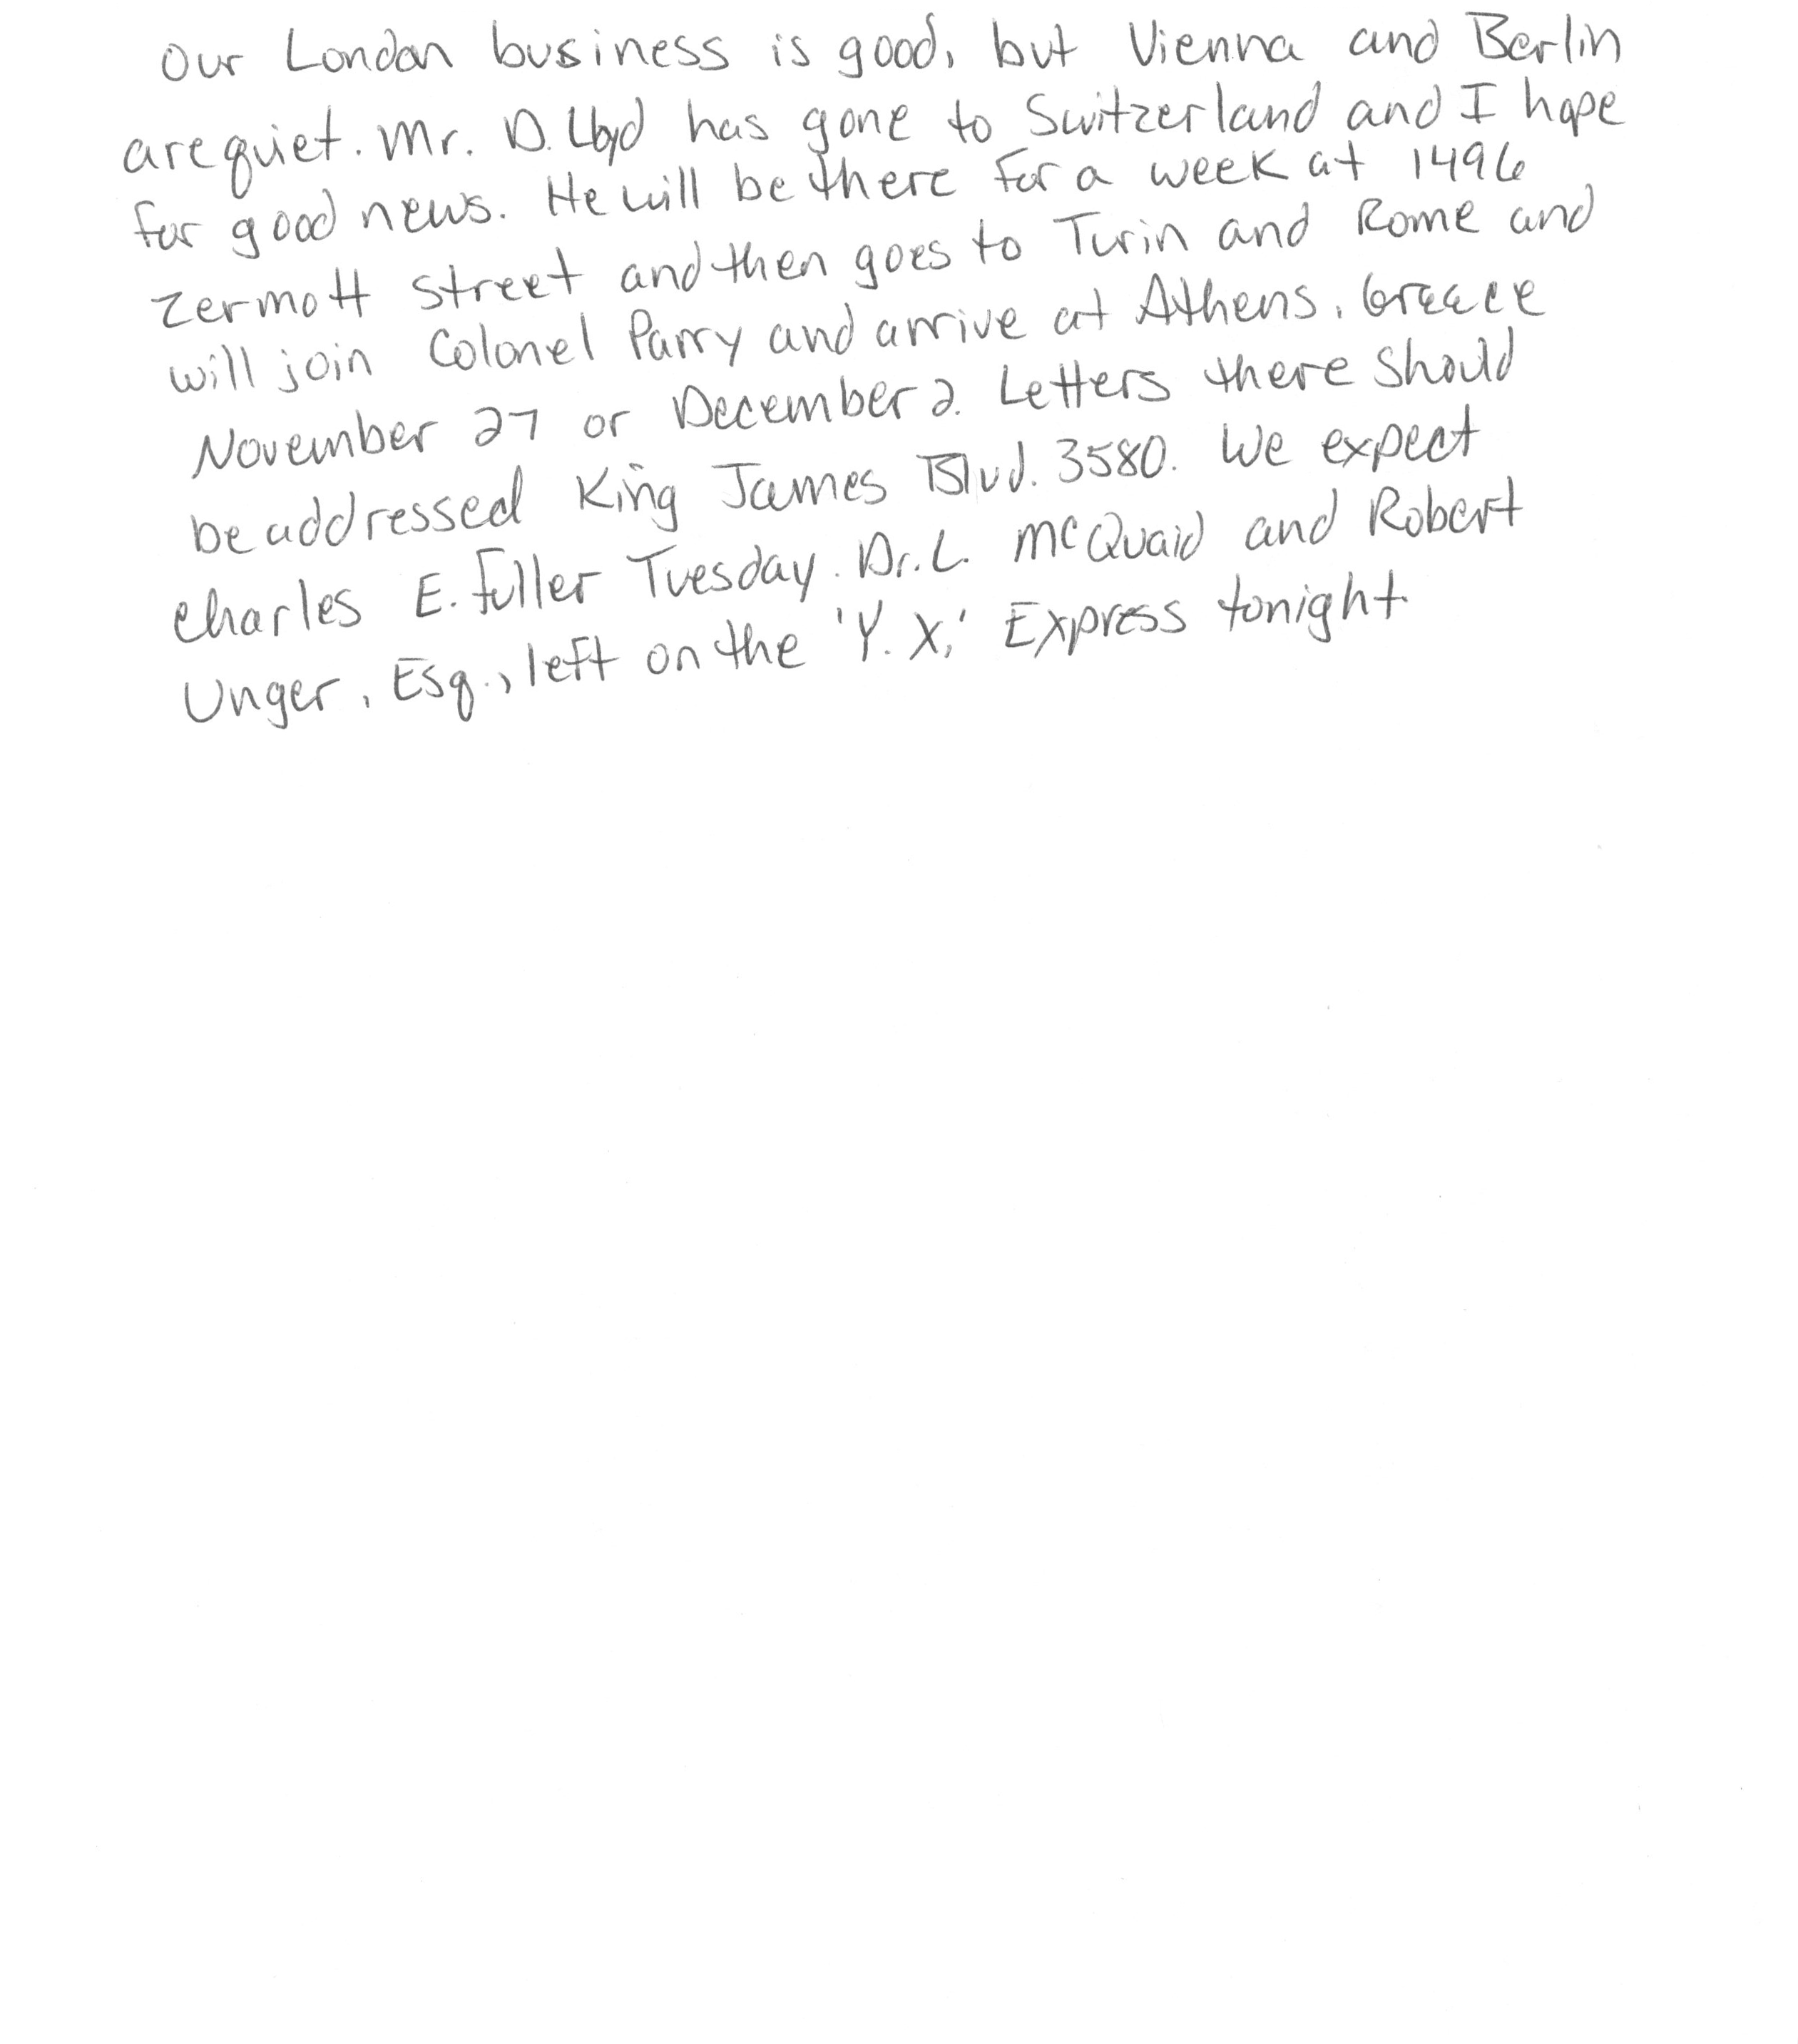 Our London business is good, but Vienna and Berlin
are quiet. Mr. D. Lloyd has gone to Switzerland and I hope
for good news. He will be there for a week at 1496
Zermott Street and then goes to Turin and Rome and
will join Colonel Parry and arrive at Athens, Greece
November 27 or December 2. Letters there should
be addressed King James Blvd. 3580. We expect
Charles E. Fuller Tuesday. Dr. L. McQuaid and Robert
Unger, Esq., left on the 'Y. X.' Express tonight.